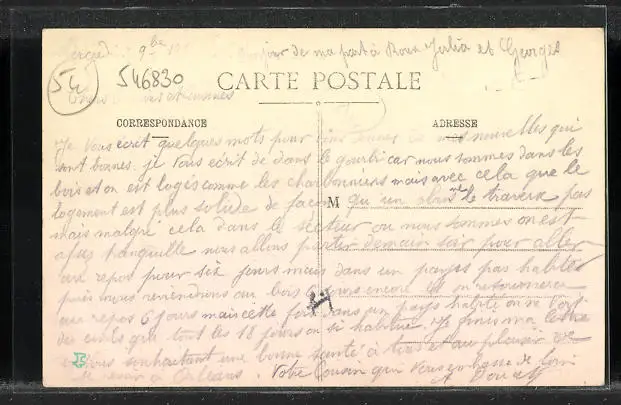 bonjour de ma part à Roux Julia et Georges
54 546830
CARTE POSTALE
CORRESPONDANCE ADRESSE
Je vous écrit quelques mots pour de mes nouvelles qui
sont bonnes. je vous écrit de dans le gourbi car nous sommes dans les
bois et on est logés comme les charbonniers mais avec cela que le
logement est plus solide de façon qu'un obus ne le traverse pas
M
mais malgré cela dans le secteur ou nous sommes on est
assez tranquille nous allons partir demain soir pour aller
au repos pour six jours mais dans un payes pas habité
puis nous reviendrons au bois 6 jours encore et on retournera
au repos 6 jours mais cette fois dans un pays habité on ne voit
des civils que tout les 18 jours on si habitue. Je finis ma lettre
en vous souhaitant une bonne santé à tous et au plaisir de
revoir à Orléans. Votre Cousin qui vous embrasse de loin
A